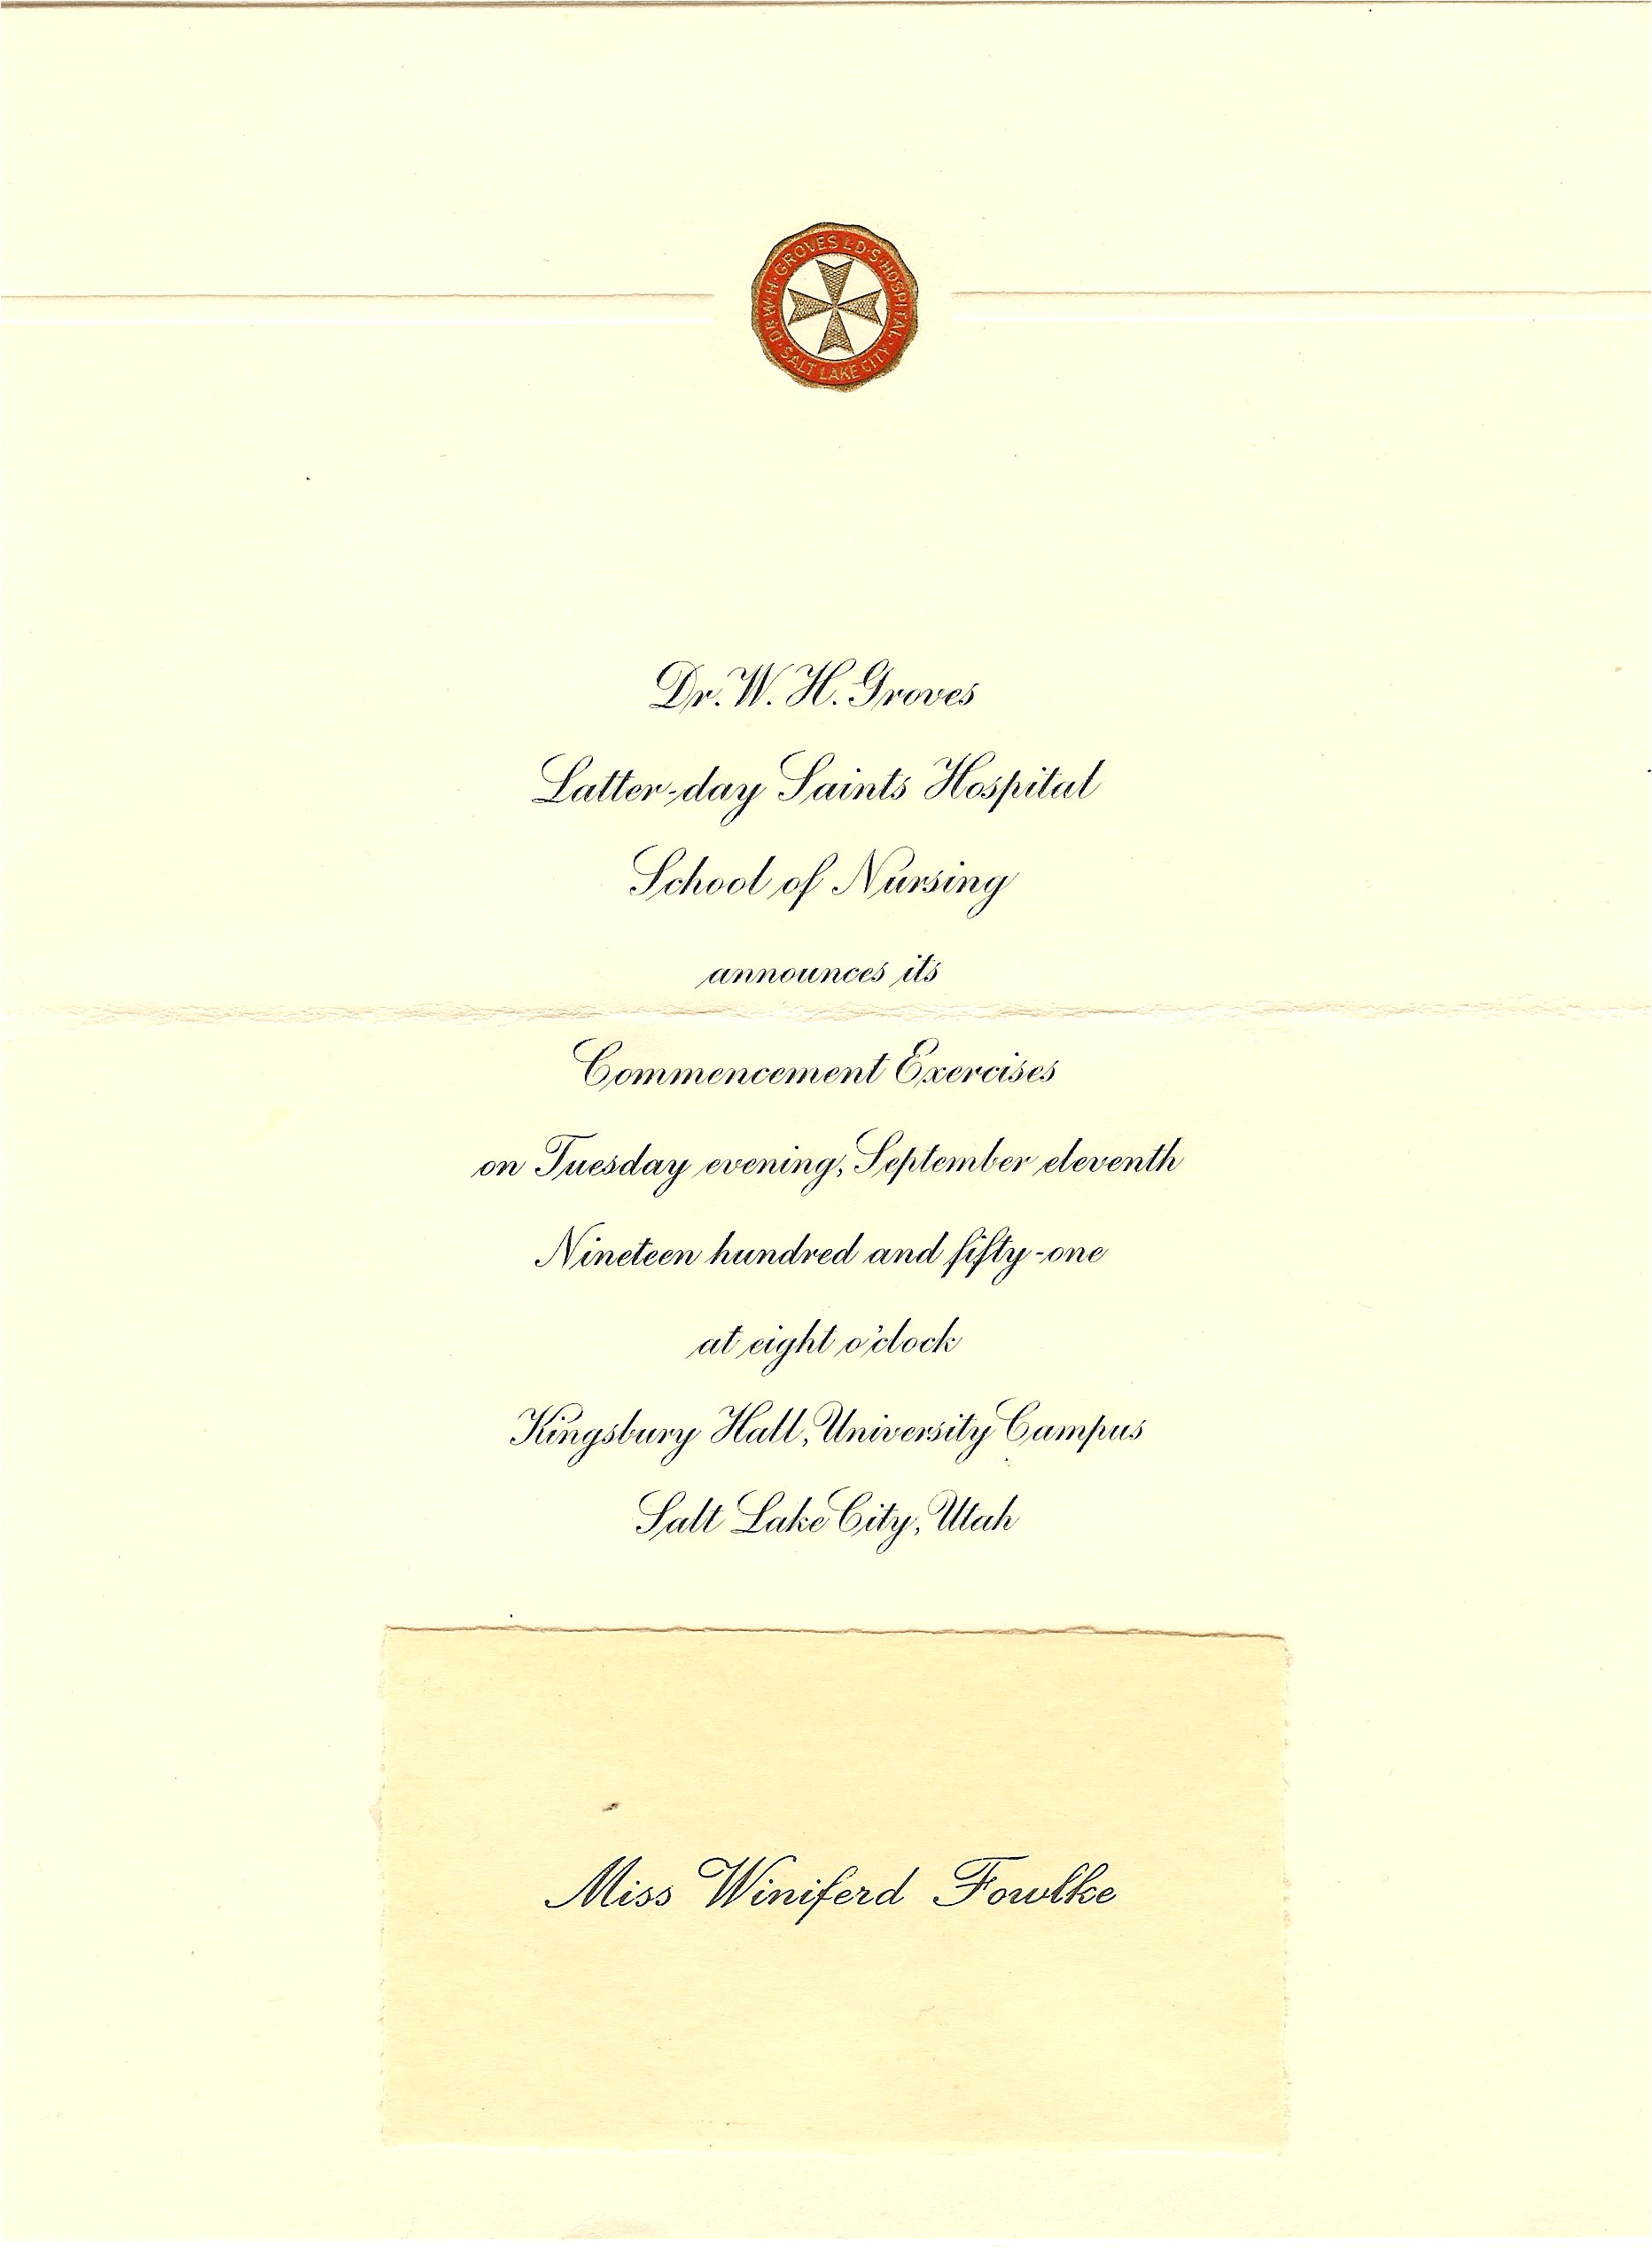 DR. W. H. GROVES L-D-S- HOSPITAL
SALT LAKE CITY
Dr. W. H. Groves
Latter-day Saints Hospital
School of Nursing
announces its
Commencement Exercises
on Tuesday evening, September eleventh
Nineteen hundred and fifty-one
at eight o'clock
Kingsbury Hall, University Campus
Salt Lake City, Utah
Miss Winiferd Fowlke